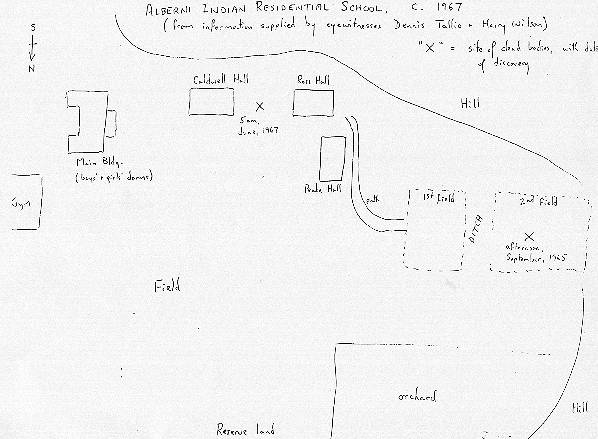 ALBERNI INDIAN RESIDENTIAL SCHOOL, C. 1967
(from information supplied by eyewitnesses Dennis Tallio + Harry Wilson)
"X" = site of dead bodies, with date
of discovery
S
N
Caldwell Hall
Ross Hall
Hill
X
5am,
June, 1967
Main Bldg.
(boys + girls' dorms)
Peake Hall
path
1st Field
DITCH
2nd Field
Gym
X
afternoon,
September, 1965
Field
orchard
Hill
Reserve land